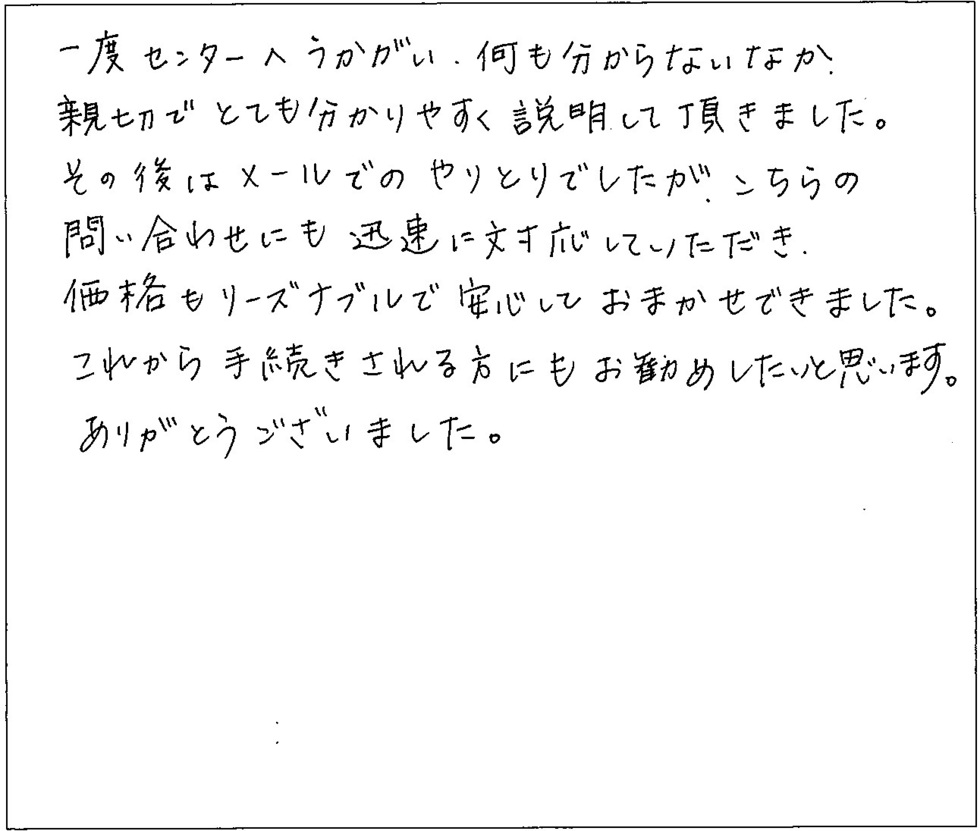 一度センターへうかがい、何も分からないなか、
親切でとても分かりやすく説明して頂きました。
その後はメールでのやりとりでしたが、こちらの
問い合わせにも迅速に対応していただき、
価格もリーズナブルで安心しておまかせできました。
これから手続きされる方にもお勧めしたいと思います。
ありがとうございました。